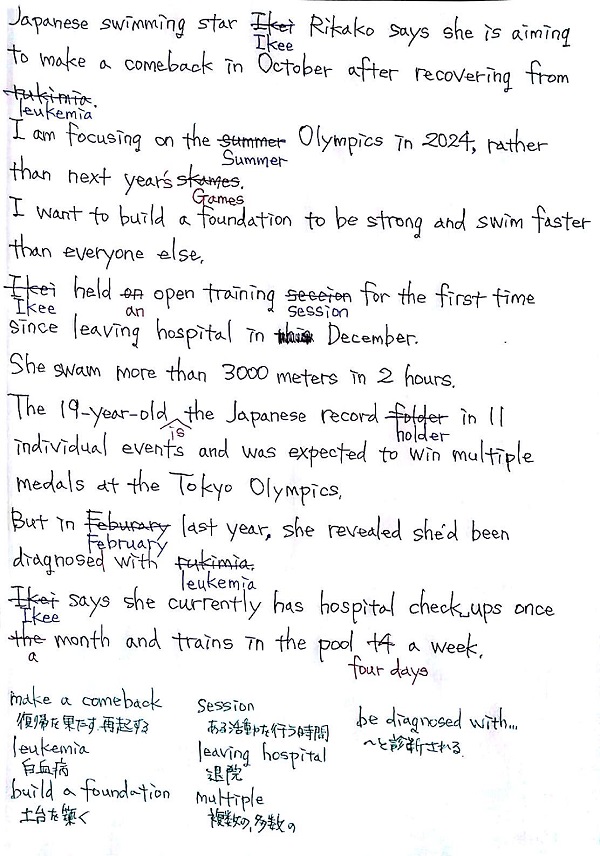 Japanese swimming star Ikei Rikako says she is aiming
Ikee
to make a comeback in October after recovering from
rukimia.
leukemia
I am focusing on the summer Olympics in 2024, rather
Summer
than next year's skames.
Games
I want to build a foundation to be strong and swim faster
than everyone else.
Ikei held on open training seccion for the first time
Ikee an session
since leaving hospital in December.
She swam more than 3000 meters in 2 hours.
The 19-year-old the Japanese record folder in 11
is holder
individual events and was expected to win multiple
medals at the Tokyo Olympics.
But in Feburary last year, she revealed she'd been
February
diagnosed with rukimia.
leukemia
Ikei says she currently has hospital check-ups once
Ikee
the month and trains in the pool t4 a week.
a four days
make a comeback
復帰を果たす, 再起する
leukemia
白血病
build a foundation
土台を築く
Session
ある活動を行う時間
leaving hospital
退院
multiple
複数の, 多数の
be diagnosed with...
〜と診断される